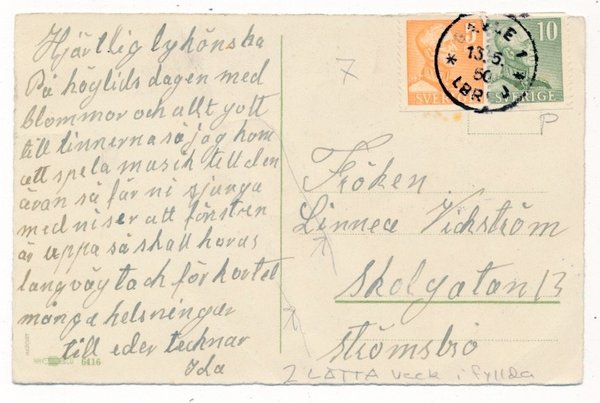 Hjärtlig lykönska
På höylids dagen med
blommor och allt gott
till linnerna så jag kom
att spela musik till den
äran så får ni sjunga
med ni ser att fönstren
är uppa så skall horas
lang väg tach för kortet
många helsningar
till eder technar
Ida
6416
7
SVERIGE
GÄVLE 1
13.5.50
LBR J
10
SVERIGE
P
Fröken
Linnea Vickström
Skolgatan 13
Strömsbro
2 LÄTTA veck i fyllda